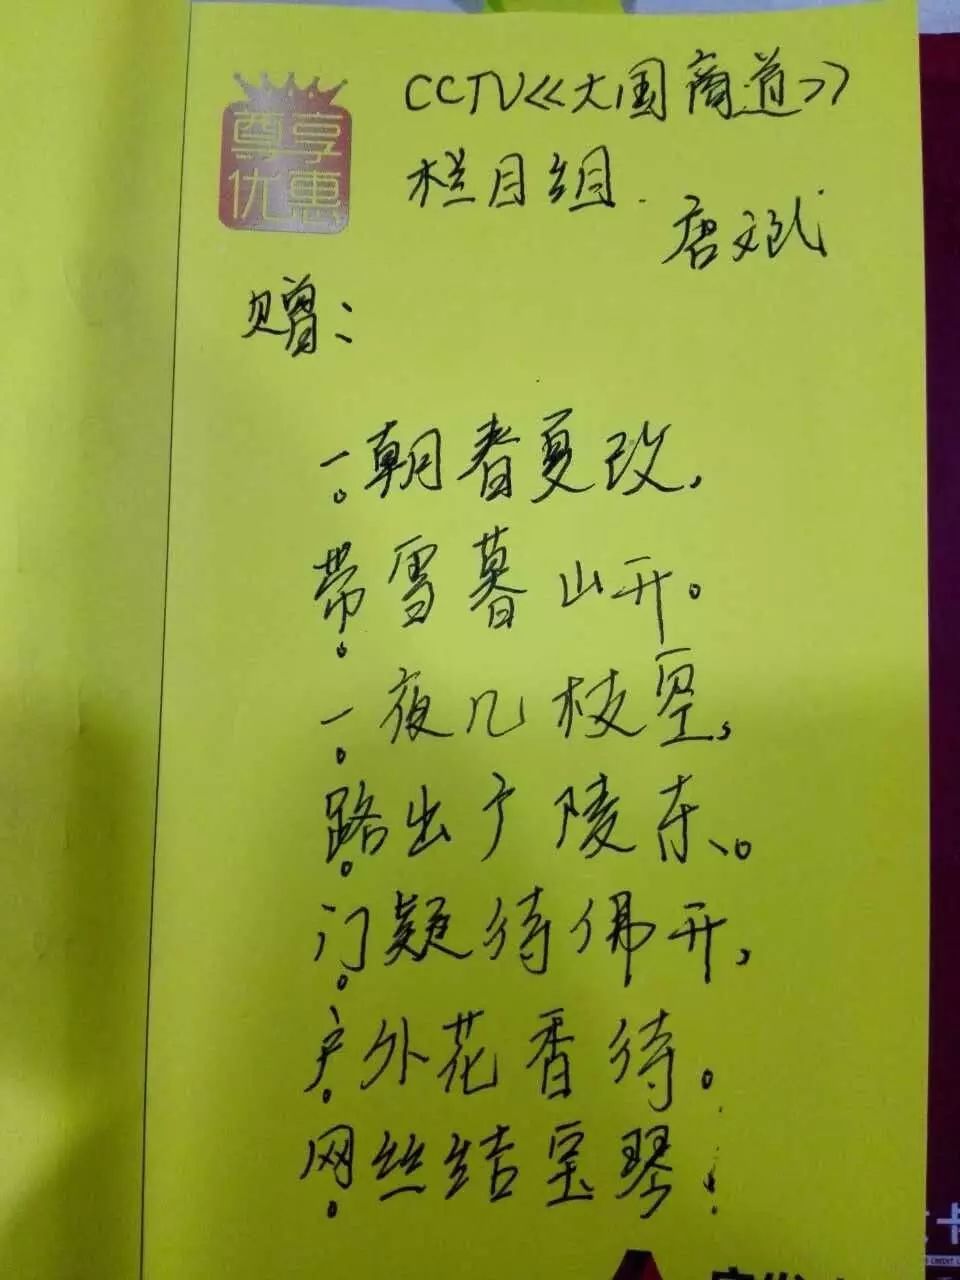 尊享
优惠
CCTV《大国商道》
栏目组.
唐文
赠:
一朝春夏改,
带雪暮山开。
一夜几枝空,
路出广陵东。
门疑待佛开,
户外花香待。
网丝结宝琴!
卡